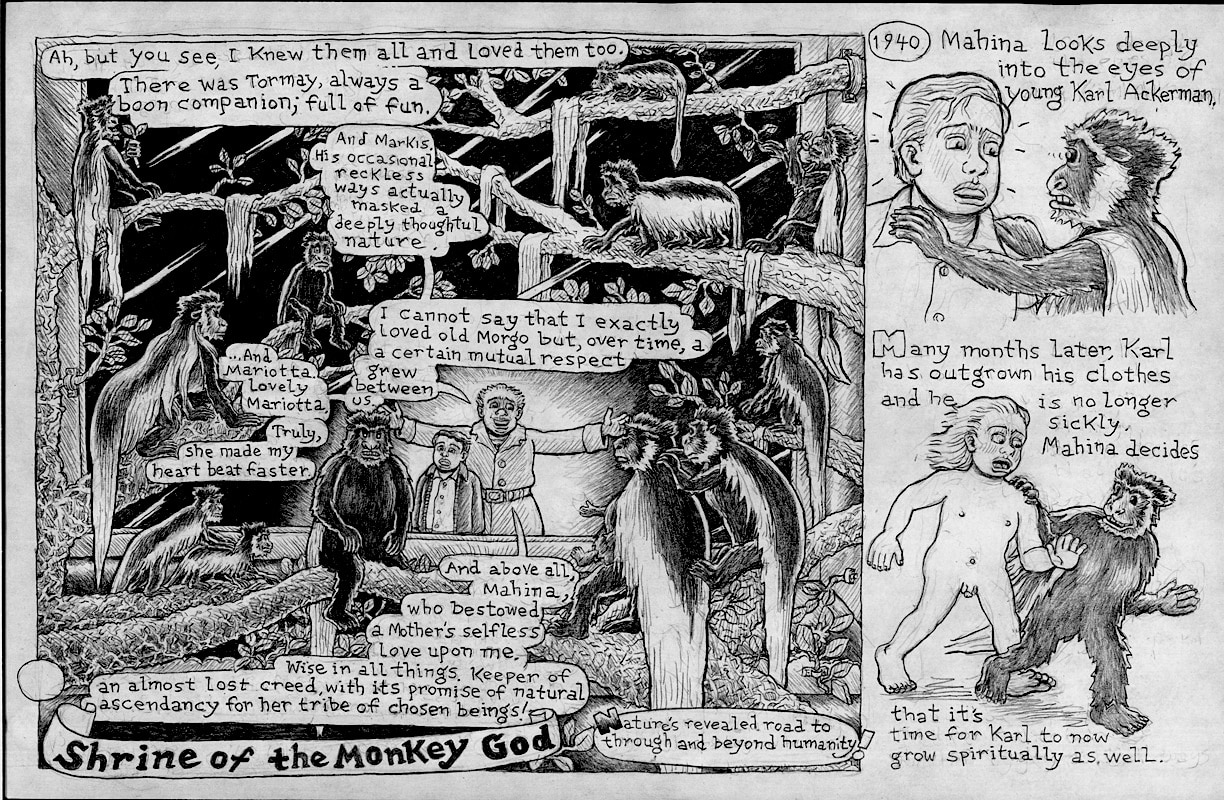 Ah, but you see, I knew them all and loved them too.
There was Tormay, always a
boon companion; full of fun.
And Markis.
His occasional
reckless
ways actually
masked a
deeply thoughtful
nature.
I cannot say that I exactly
loved old Morgo but, over time, a
a certain mutual respect
grew
between
us.
...And
Mariotta
lovely
Mariotta
Truly,
she made my
heart beat faster.
And above all,
Mahina,
who bestowed
a Mother's selfless
Love upon me.
Wise in all things. Keeper of
an almost lost creed, with its promise of natural
ascendancy for her tribe of chosen beings!
Nature's revealed road to
through and beyond humanity!
Shrine of the Monkey God
1940 Mahina looks deeply
into the eyes of
young Karl Ackerman.
Many months later, Karl
has outgrown his clothes
and he is no longer
sickly.
Mahina decides
that it's
time for Karl to now
grow spiritually as well.